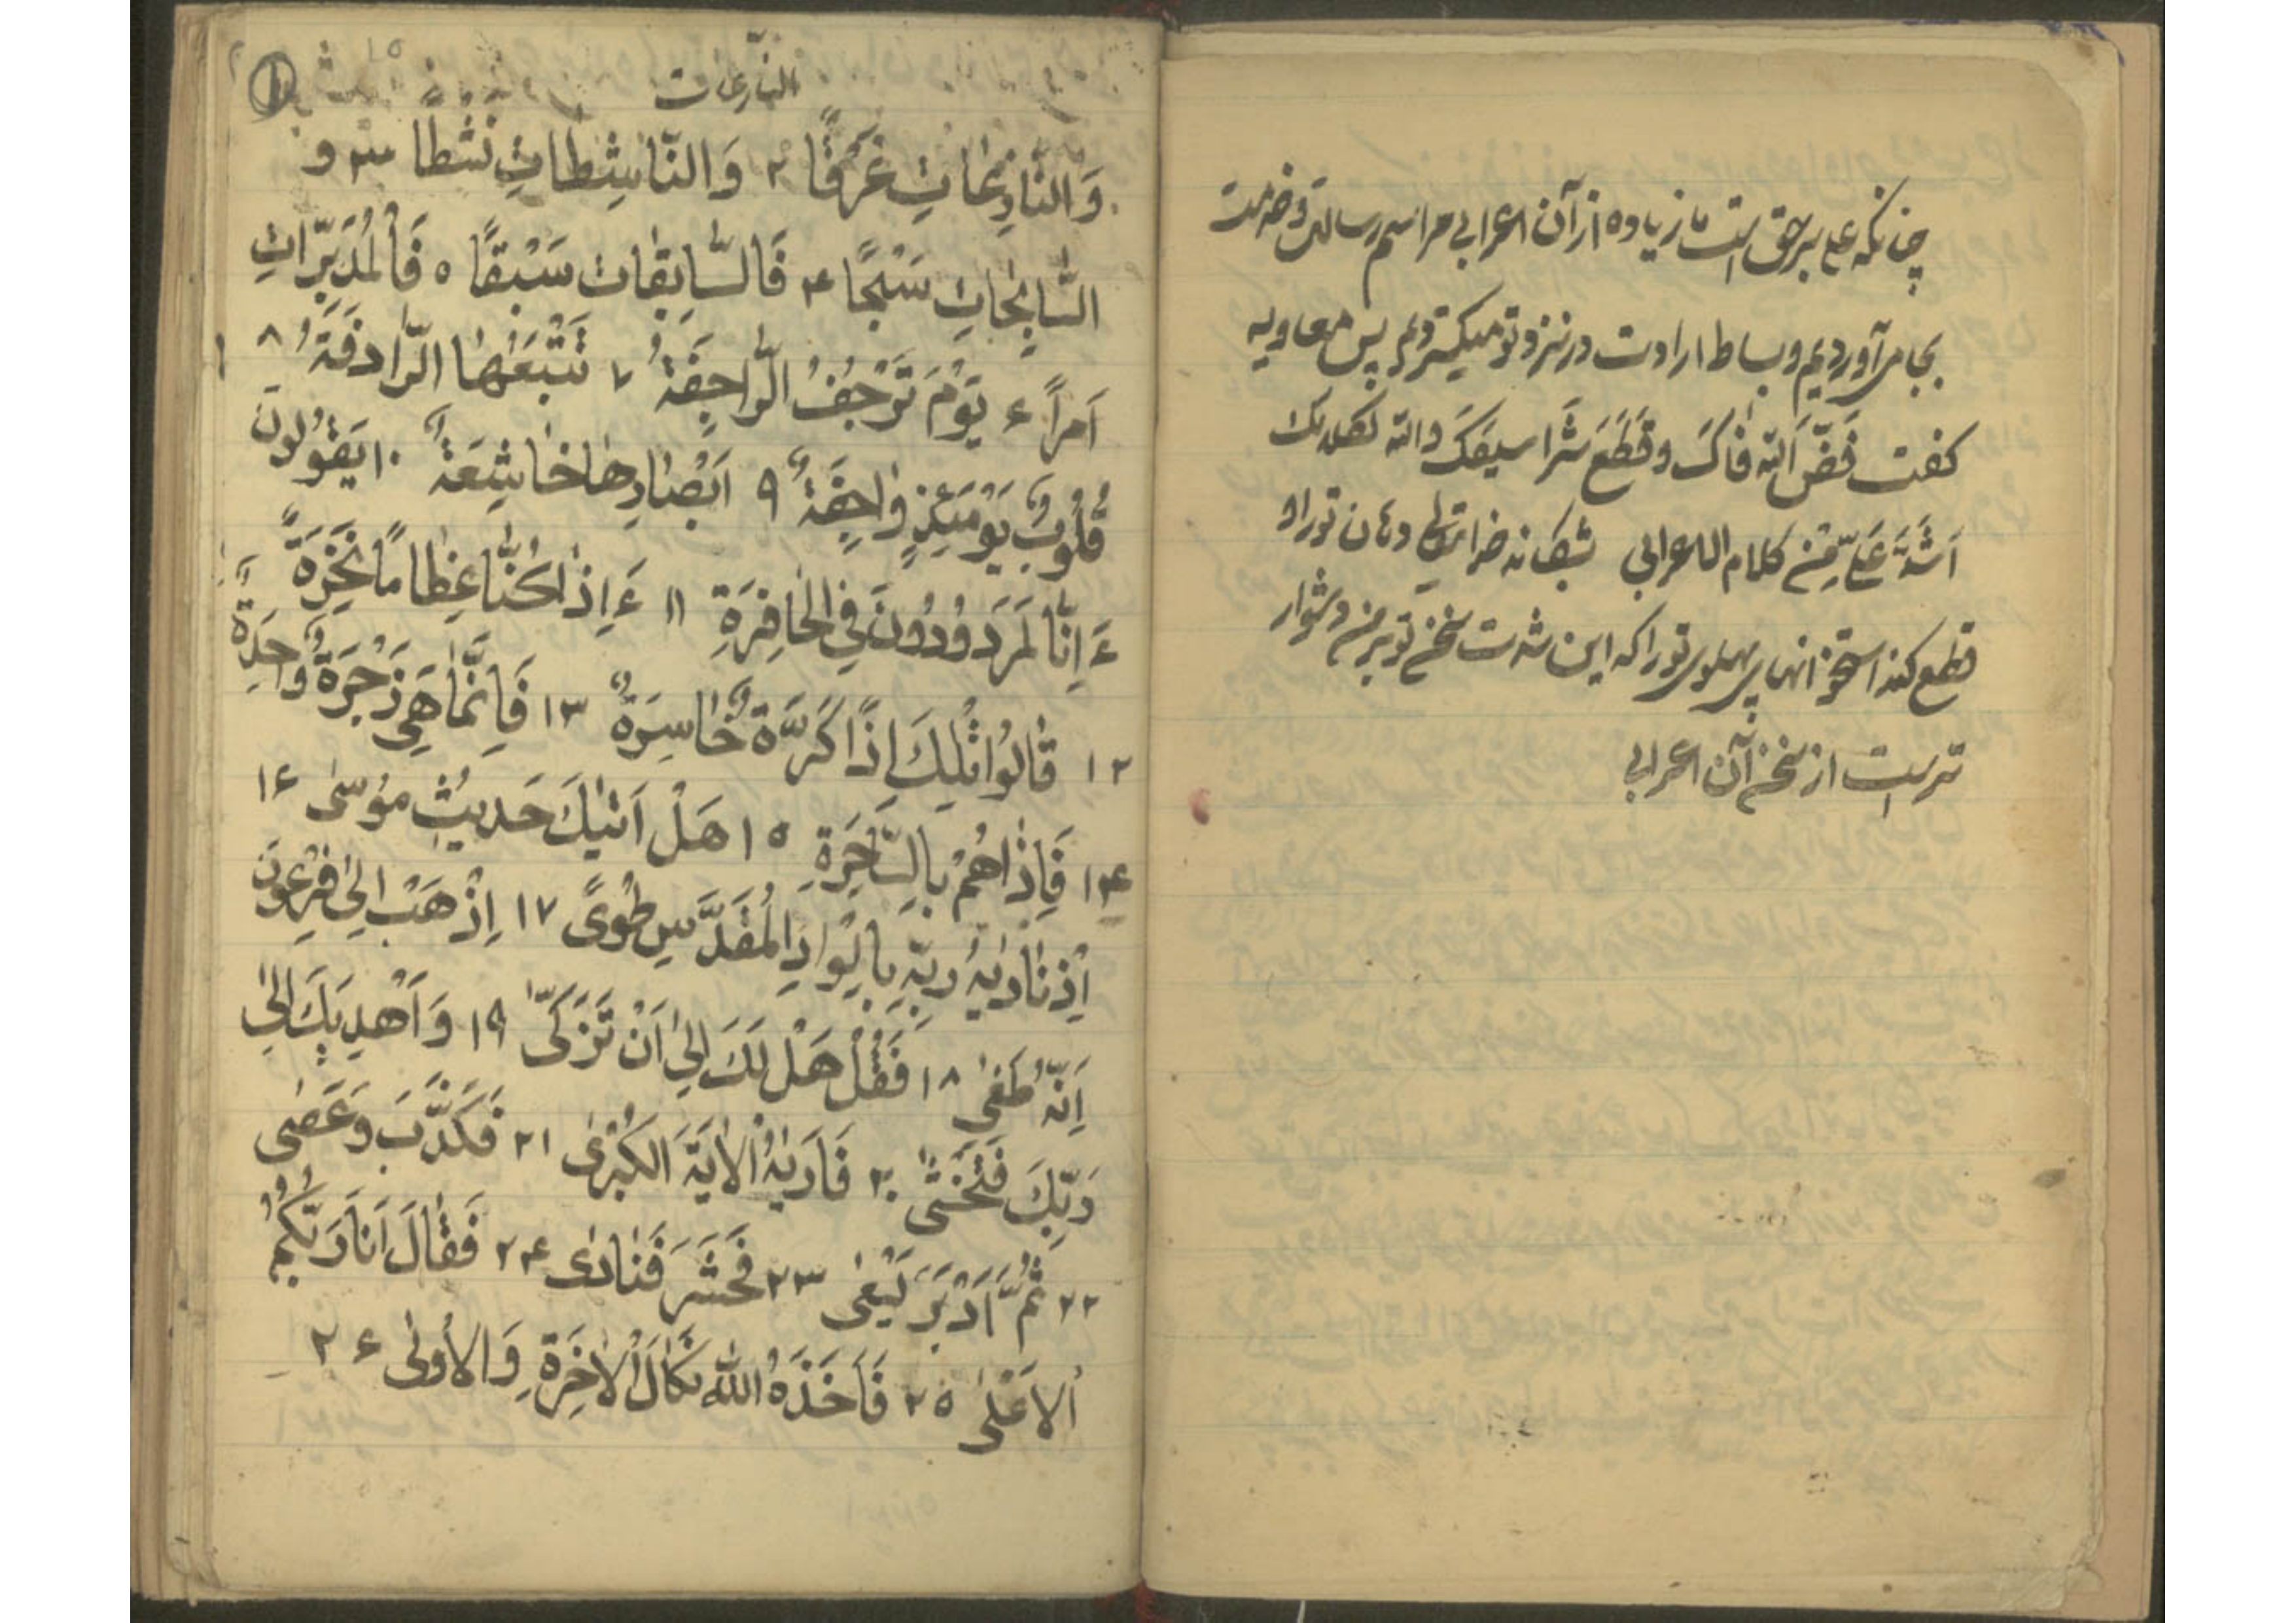 چنانکه علی برحق است ما زیاده از آن اعرابی مراسم رسالت و خدمت
بجا می‌آوردیم و بساط ارادت در نزد تو میگستردیم پس معاویه
گفت فَضَّ اَللّه فٰاکَ وَ قَطَعَ شَرٰاسیفَکَ واللّه لکلامک
اَشَدَّ عَلَیّ مِنْ کلام الاعرابی شکند خدایتعالی دهان تو را و
قطع کند استخوانهای پهلوی تو را که این شدت سخن تو بر من دشوار
تر است از سخن آن اعرابی
النّازعات
١٥
وَ النّٰازِعٰاتِ غَرْقًا ٢ وَ النّٰاشِطٰاتِ نَشْطًا ٣ و
السّٰابِحٰاتِ سَبْحًا ۴ فَالسّٰابِقٰات سَبْقًا ٥ فَالْمُدَبِّرٰاتِ
اَمراً ۶ یَوْمَ تَرْجُفُ الرّٰاجِفَةُ ٧ تَتْبَعُهٰا الرّٰادفَةُ ٨
قُلُوبٌ یَوْمَئِذٍ وٰاجِفَةٌ ٩ اَبْصٰارُهٰا خٰاشِعَةٌ ١٠ یَقُولُونَ
ءَاِنّٰا لَمَرَدوُدُونَ فِی الْحٰافِرَةِ ١١ ءَاِذٰا کُنّٰا عِظٰامًا نَخِرَةً
١٢ قٰالُوا تِلْكَ اِذًا کَرَّةٌ خٰاسِرَةٌ ١٣ فَاِنَّمٰا هِیَ زَجْرَةٌ وٰاحِدَةٌ
١۴ فَاِذٰا هُمْ بِالسّٰاهِرَةِ ١٥ هَلْ اَتٰیكَ حَدیثُ مُوسٰی ١۶
اِذْ نٰادٰیهُ رَبّهِ بِالْوٰادِ الْمُقَدَّسِ طُوًی ١٧ اِذْهَبْ اِلیٰ فِرْعَونَ
اِنّهُ طَغیٰ ١٨ فَقُلْ هَلْ لَكَ اِلیٰ اَنْ تَزَکّیٰ ١٩ وَ اَهْدِیَكَ اِلیٰ
رَبِّكَ فَتَخْشیٰ ٢٠ فَاَرٰیهُ الْاٰیَةَ الْکُبْریٰ ٢١ فَکَذَّبَ وَ عَصٰی
٢٢ ثُمَّ اَدْبَرَ یَسْعٰی ٢٣ فَحَشَرَ فَنٰادٰی ٢۴ فَقٰالَ اَنَا رَبُّکُمُ
الاَعْلٰی ٢٥ فَاَخَذَهُ اللّٰهُ نَکٰالَ الْاٰخِرَةِ وَ الاُولٰی ٢۶